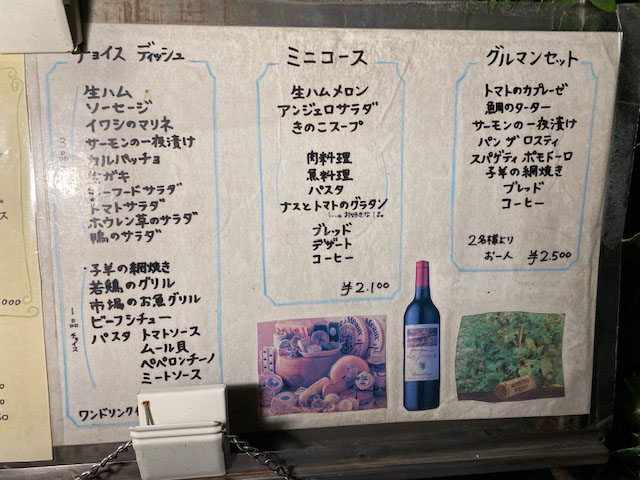 チョイス ディッシュ
生ハム
ソーセージ
イワシのマリネ
サーモンの一夜漬け
カルパッチョ
生ガキ
シーフードサラダ
トマトサラダ
ホウレン草のサラダ
鴨のサラダ
子羊の網焼き
若鶏のグリル
市場のお魚グリル
ビーフシチュー
パスタ トマトソース
ムール貝
ペペロンチーノ
ミートソース
一品チョイス
ワンドリンク
ミニコース
生ハムメロン
アンジェロサラダ
きのこスープ
肉料理
魚料理
パスタ
ナスとトマトのグラタン
お好きな1品
ブレッド
デザート
コーヒー
¥2.100
グルマンセット
トマトのカプレーゼ
鯛のターター
サーモンの一夜漬け
パン ザ ロスティ
スパゲティ ポモドーロ
子羊の網焼き
ブレッド
コーヒー
2名様より
お一人 ¥2.500